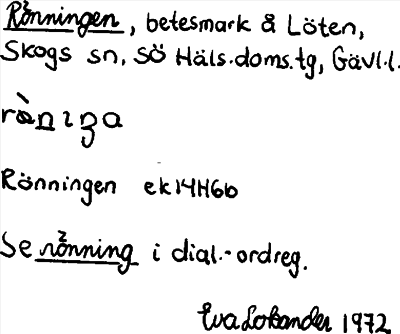 Rönningen, betesmark å Löten,
Skogs sn, SÖ Häls.doms.tg, Gävl.l.
Rönningen ek14H6b
Se rönning i dial.-ordreg.
Eva 1972